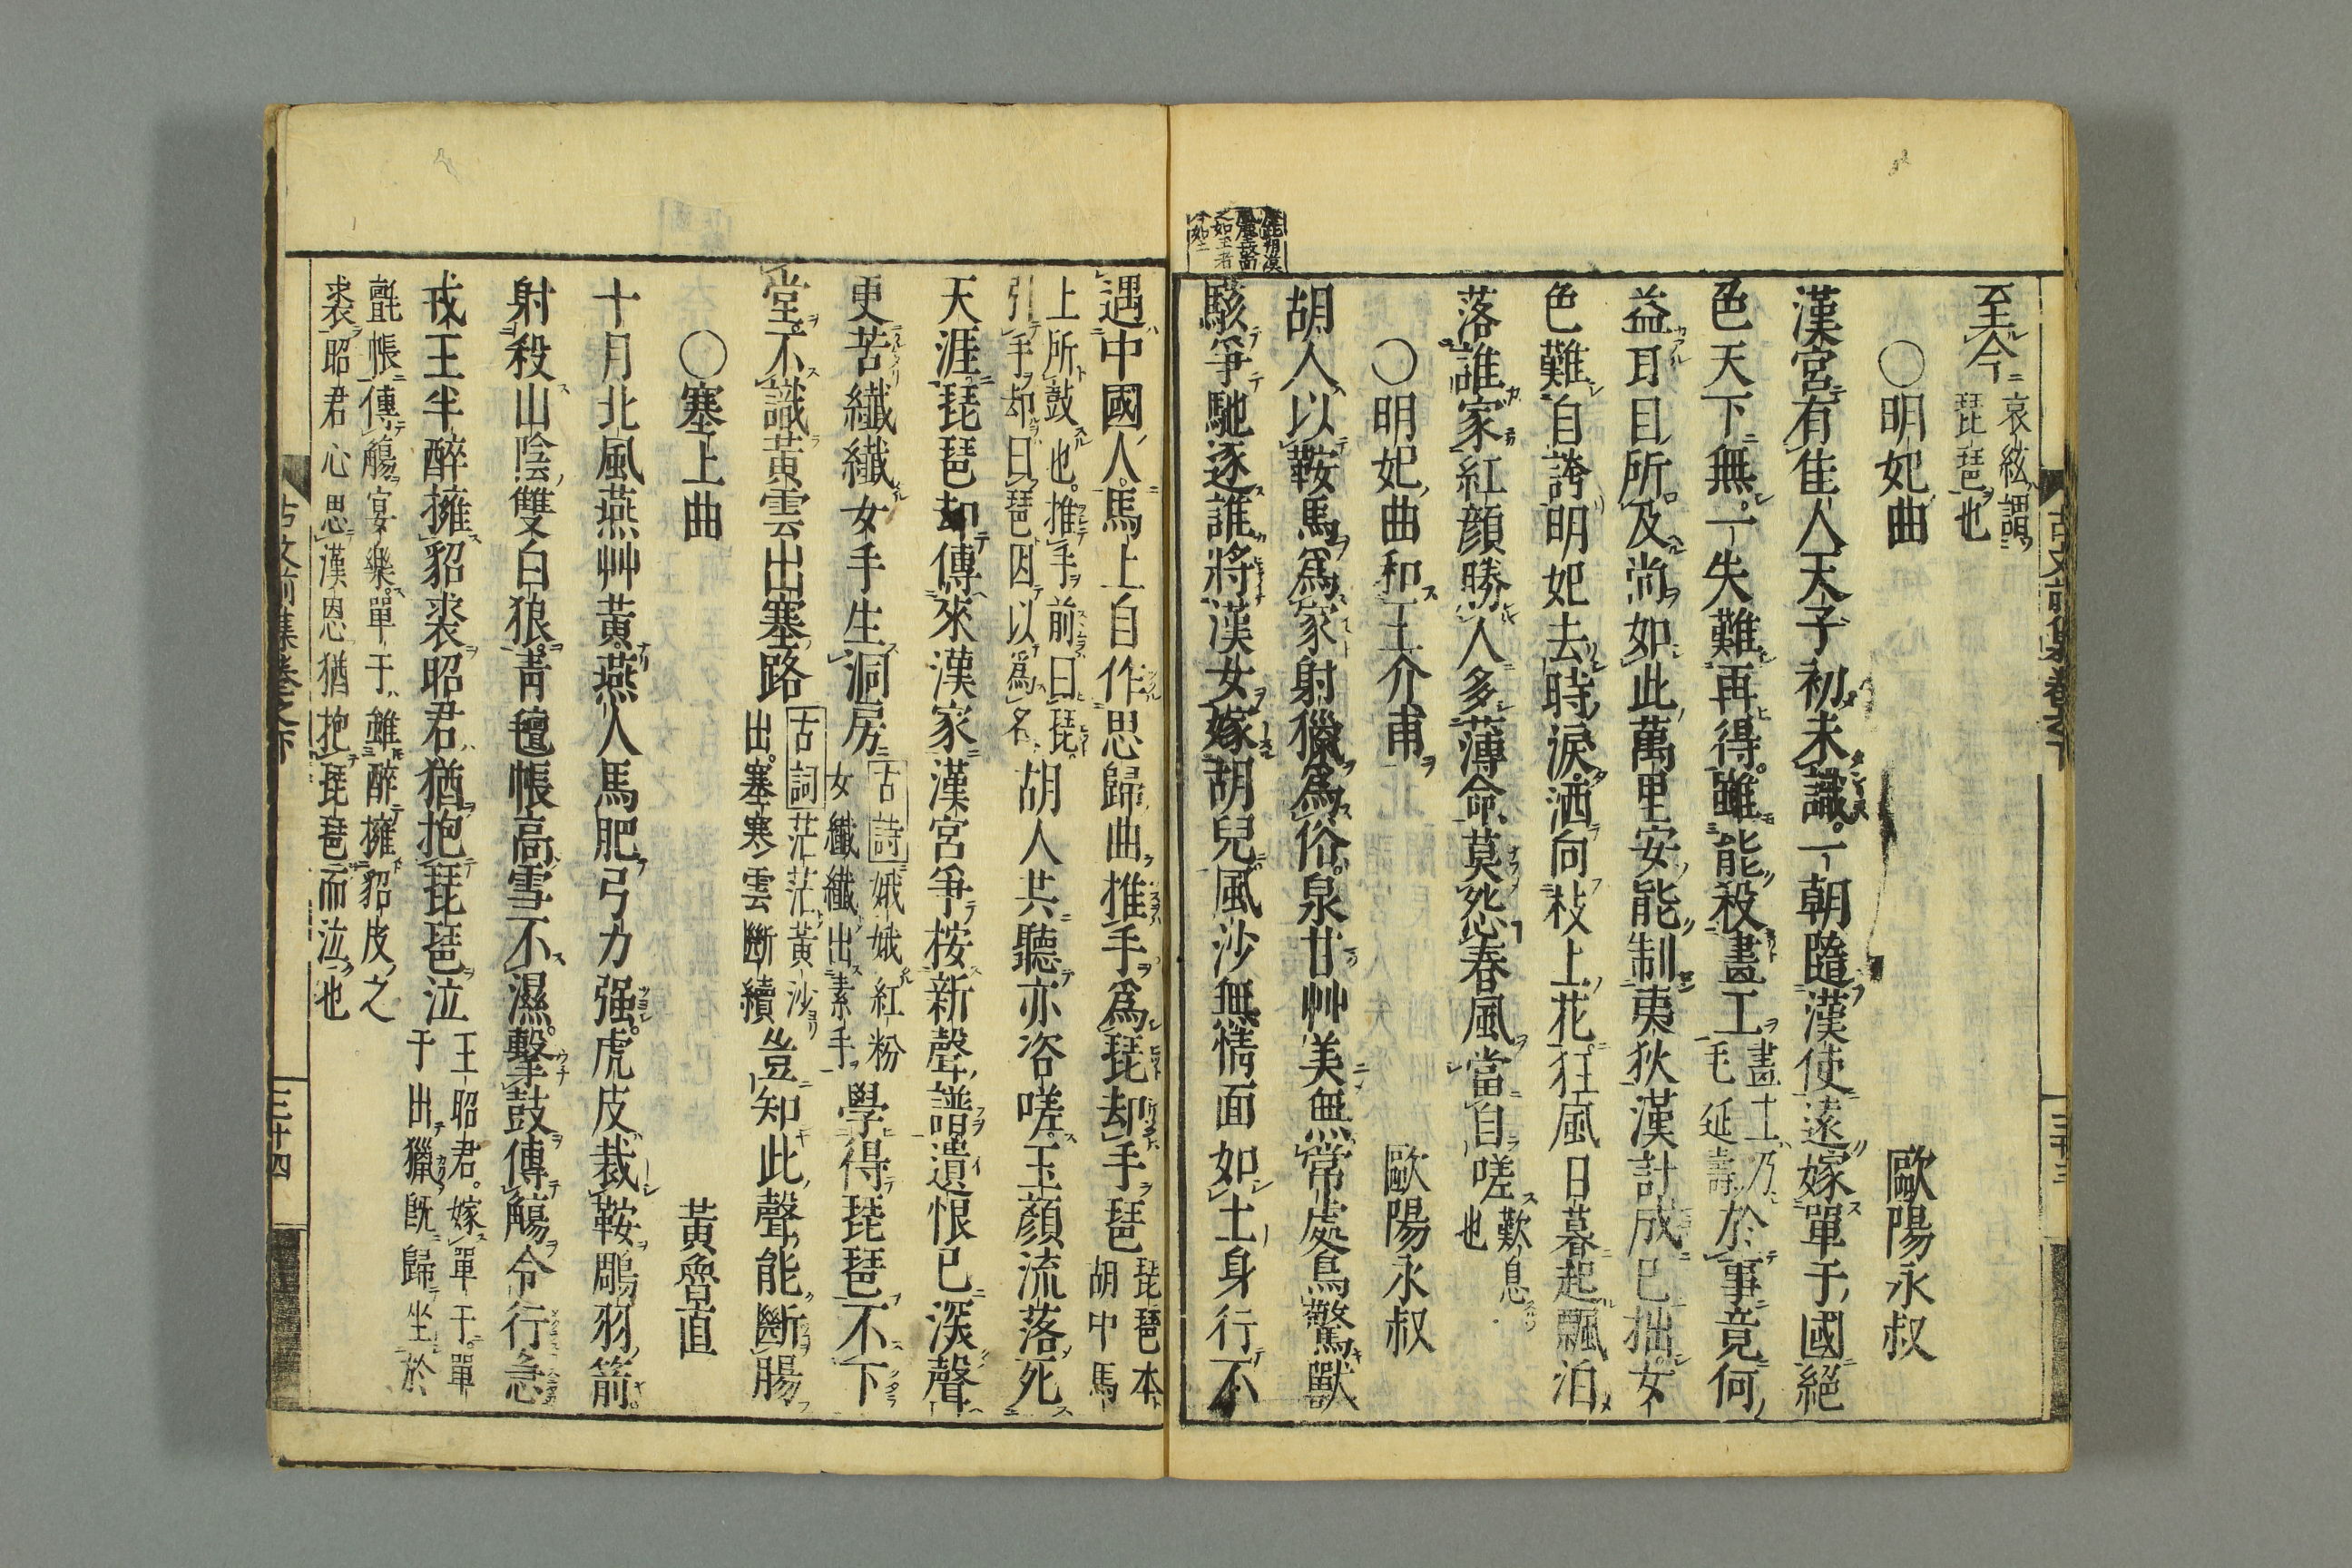 至今哀絃謂琵琶也
○明妃曲 歐陽永叔
漢宮有佳人天子初未識一朝隨漢使遠嫁單于國絕
色天下無一失難再得雖能殺畫工畫工乃毛延壽於事竟何
益耳目所及尚如此萬里安能制夷狄漢計成已拙女
色難自誇明妃去時淚洒向枝上花狂風日暮起飄泊
落誰家紅顏勝人多薄命莫怨春風當自嗟歎息也
○明妃曲和王介甫 歐陽永叔
胡人以鞍馬爲家射獵爲俗泉甘艸美無常處鳥驚獸
駭爭馳逐誰將漢女嫁胡兒風沙無情面如土身行不
遇中國人馬上自作思歸曲推手爲琵却手琶琵琶本胡中馬
上所鼓也推手前曰琵引手却曰琶因以爲名胡人共聽亦咨嗟玉顏流落死
天涯琵琶却傳來漢家漢宮爭按新聲譜遺恨已深聲
更苦纖纖女手生洞房古詩娥娥紅粉女纖纖出素手學得琵琶不下
堂不識黃雲出塞路古詞茫茫黃沙出塞寒雲斷續豈知此聲能斷腸
○塞上曲 黃魯直
十月北風燕艸黃燕人馬肥弓力强虎皮裁鞍鵰羽箭
射殺山陰雙白狼靑氊帳高雪不濕擊鼓傳觴令行急
戎王半醉擁貂裘昭君猶抱琵琶泣王昭君嫁單于單于出獵既歸坐於
氈帳傳觴宴樂單于雖醉擁貂皮之
裘昭君心思漢恩猶抱琵琶而泣也
三十四